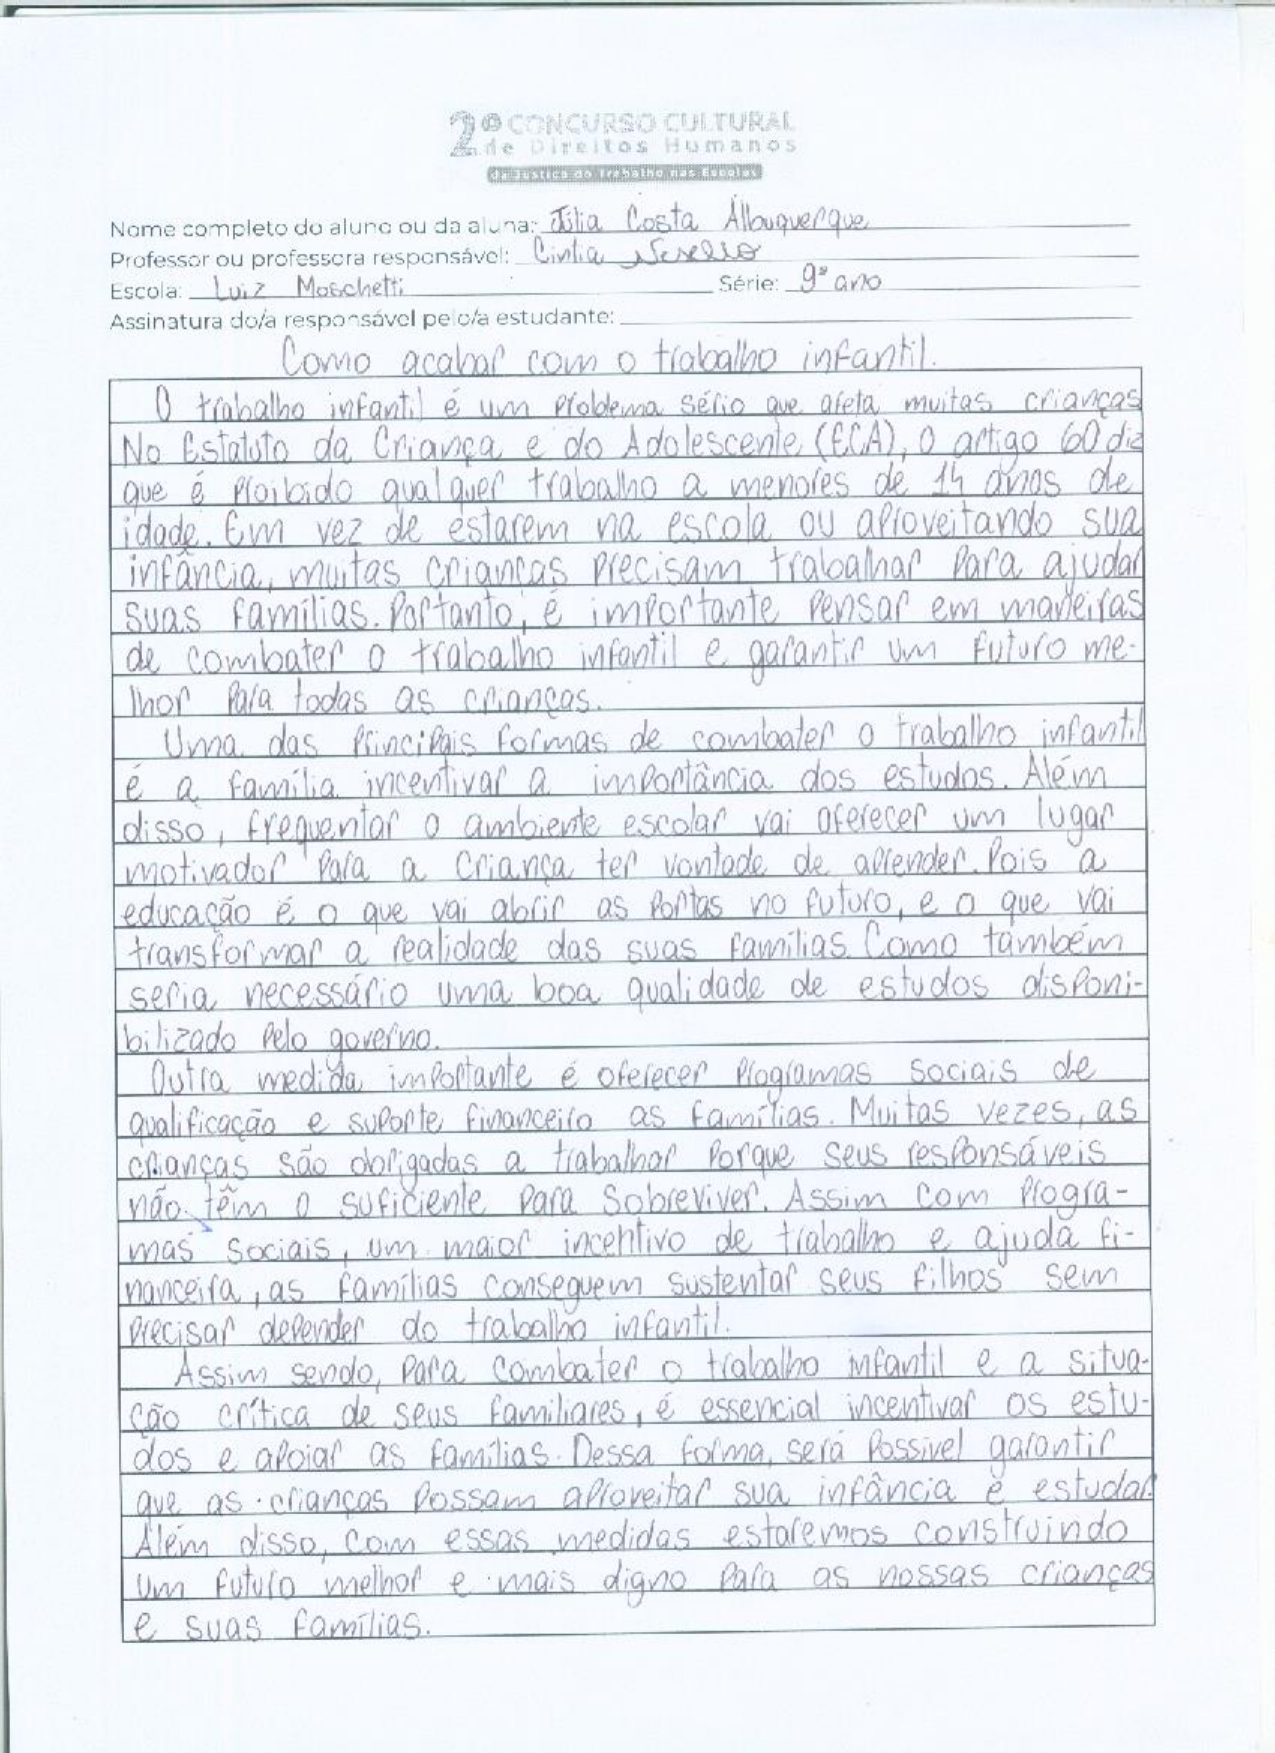 2º CONCURSO CULTURAL
de Direitos Humanos
da Justiça do Trabalho nas Escolas
Nome completo do aluno ou da aluna: Júlia Costa Albuquerque
Professor ou professora responsável: Cintia
Escola: Luiz Moschetti Série: 9º ano
Assinatura do/a responsável pelo/a estudante:
Como acabar com o trabalho infantil.
O trabalho infantil é um problema sério que afeta muitas crianças
No Estatuto da Criança e do Adolescente (ECA), o artigo 60 diz
que é proibido qualquer trabalho a menores de 14 anos de
idade. Em vez de estarem na escola ou aproveitando sua
infância, muitas crianças precisam trabalhar para ajudar
suas famílias. Portanto, é importante pensar em maneiras
de combater o trabalho infantil e garantir um futuro me-
lhor para todas as crianças.
Uma das principais formas de combater o trabalho infantil
é a família incentivar a importância dos estudos. Além
disso, frequentar o ambiente escolar vai oferecer um lugar
motivador para a criança ter vontade de aprender. Pois a
educação é o que vai abrir as portas no futuro, e o que vai
transformar a realidade das suas famílias. Como também
seria necessário uma boa qualidade de estudos disponi-
bilizado pelo governo.
Outra medida importante é oferecer programas sociais de
qualificação e suporte financeiro as famílias. Muitas vezes, as
crianças são obrigadas a trabalhar porque seus responsáveis
não têm o suficiente para sobreviver. Assim com progra-
mas sociais, um maior incentivo de trabalho e ajuda fi-
nanceira, as famílias conseguem sustentar seus filhos sem
precisar depender do trabalho infantil.
Assim sendo, para combater o trabalho infantil e a situa-
ção crítica de seus familiares, é essencial incentivar os estu-
dos e apoiar as famílias. Dessa forma, será possível garantir
que as crianças possam aproveitar sua infância e estudar.
Além disso, com essas medidas estaremos construindo
um futuro melhor e mais digno para as nossas crianças
e suas famílias.